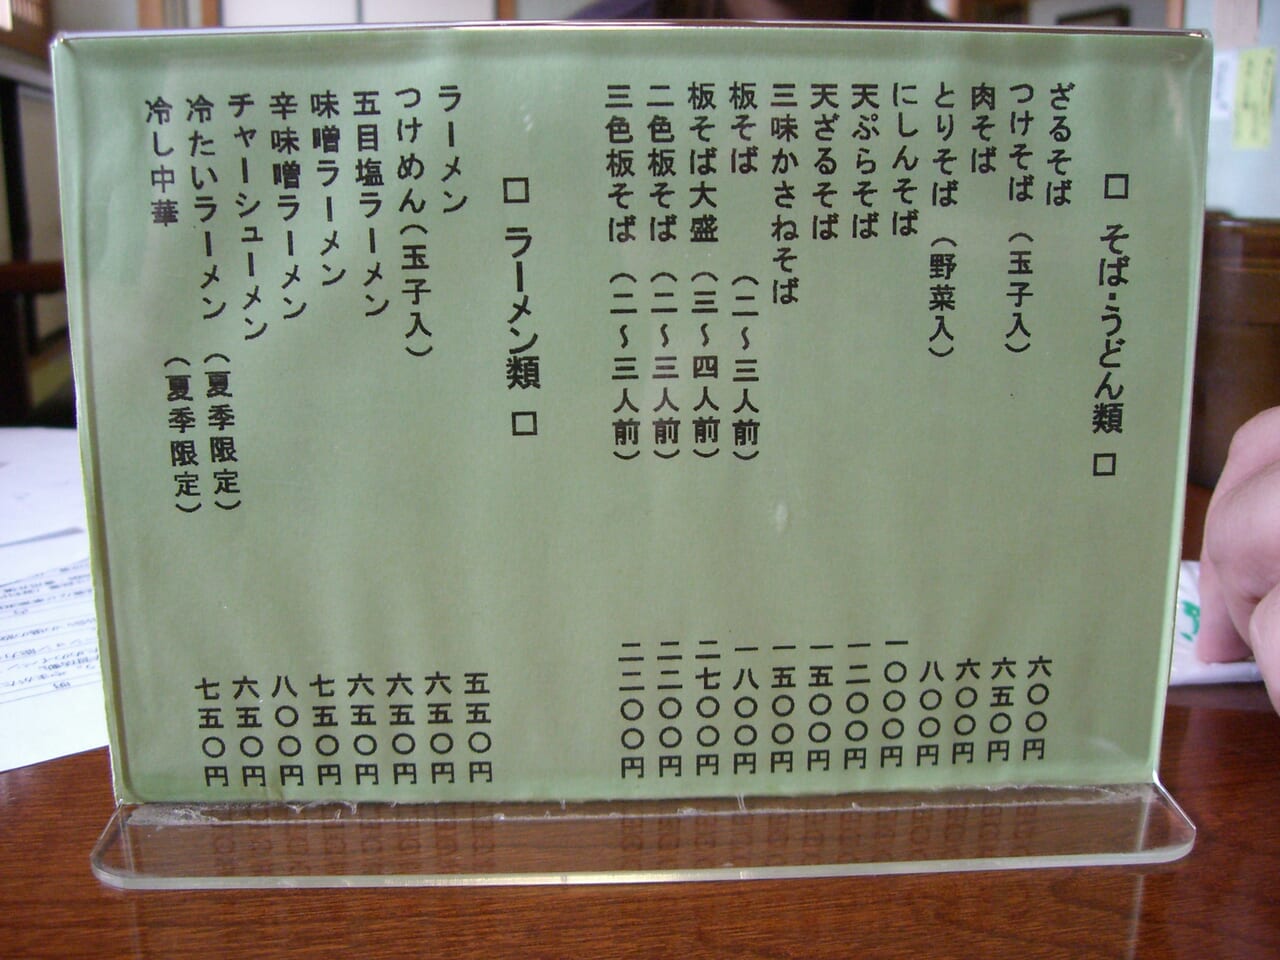 □ そば・うどん類 □
ざるそば 六〇〇円
つけそば（玉子入） 六五〇円
肉そば 六〇〇円
とりそば（野菜入） 八〇〇円
にしんそば 一〇〇〇円
天ぷらそば 一二〇〇円
天ざるそば 一五〇〇円
三味かさねそば 一五〇〇円
板そば（二～三人前） 一八〇〇円
板そば大盛（三～四人前） 二七〇〇円
二色板そば（二～三人前） 二二〇〇円
三色板そば（二～三人前） 二二〇〇円
□ ラーメン類 □
ラーメン 五五〇円
つけめん（玉子入） 六五〇円
五目塩ラーメン 六五〇円
味噌ラーメン 六五〇円
辛味噌ラーメン 七五〇円
チャーシューメン 八〇〇円
冷たいラーメン（夏季限定） 六五〇円
冷し中華（夏季限定） 七五〇円